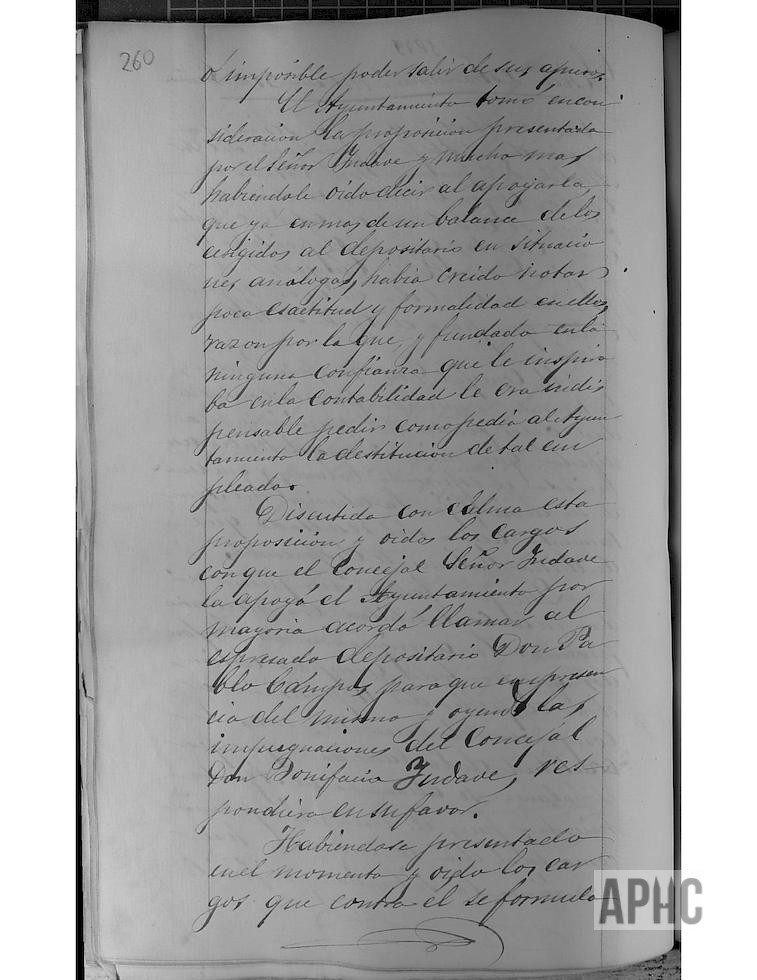 260
o imposible poder salir de sus apuros.
El Ayuntamiento tomó encon
sideracion la proposicion presentada
por el Señor Indave y mucho mas
habiendole oido decir al apoyarla,
que ya en mas de un balance de los
ecsigidos al depositario en situacio
nes análogas, habia creido notar
poca esactitud y formalidad en ellos,
razon por la que, y fundado en la
ninguna confianza que le inspira
ba en la contabilidad le era indis
pensable pedir como pedia al Ayun
tamiento la destitucion de tal em
pleado.
Discutida con calma esta
proposicion y oidos los cargos
con que el Concejal Señor Indave
la apoyó el Ayuntamiento por
mayoria acordó llamar al
espresado depositario Don Pa
blo Campos para que en presen
cia del mismo y oyendo las
impugnaciones del Concejal
Don Bonifacio Indave, res
pondiera en su favor.
Habiendose presentado
en el momento y oido los car
gos que contra él se formula
APHC